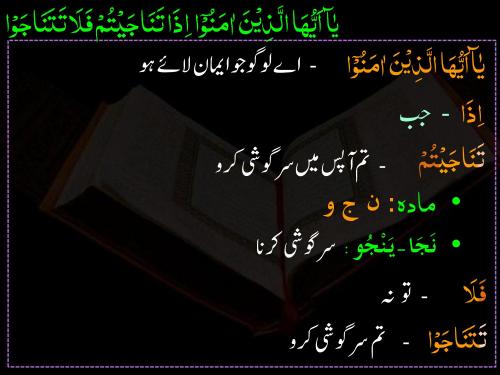 يٰٓاَيُّهَا الَّذِيْنَ اٰمَنُوْٓا اِذَا تَنَاجَيْتُمْ فَلَا تَتَنَاجَوْا
يٰٓاَيُّهَا الَّذِيْنَ اٰمَنُوْٓا - اے لوگو جو ایمان لائے ہو
اِذَا - جب
تَنَاجَيْتُمْ - تم آپس میں سرگوشی کرو
• مادہ: ن ج و
• نَجَا - يَنْجُو : سرگوشی کرنا
فَلَا - تو نہ
تَتَنَاجَوْا - تم سرگوشی کرو